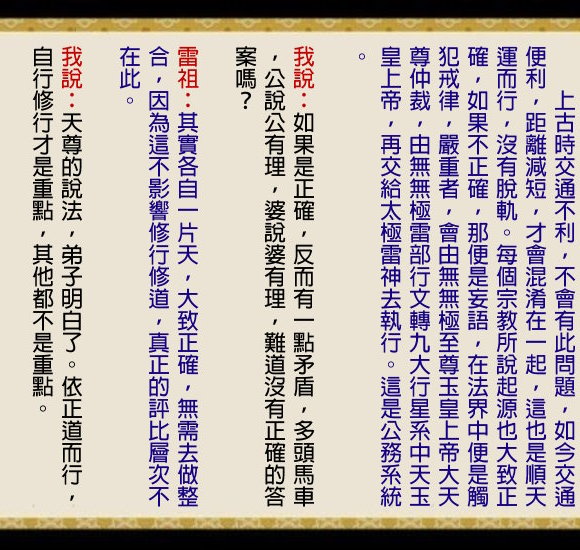 上古時交通不利，不會有此問題，如今交通
便利，距離減短，才會混淆在一起，這也是順天
運而行，沒有脫軌。每個宗教所說起源也大致正
確，如果不正確，那便是妄語，在法界中便是觸
犯戒律，嚴重者，會由無無極至尊玉皇上帝大天
尊仲裁，由無無極雷部行文轉九大行星系中天玉
皇上帝，再交給太極雷神去執行。這是公務系統
。
我說：如果是正確，反而有一點矛盾，多頭馬車
，公說公有理，婆說婆有理，難道沒有正確的答
案嗎？
雷祖：其實各自一片天，大致正確，無需去做整
合，因為這不影響修行修道，真正的評比層次不
在此。
我說：天尊的說法，弟子明白了。依正道而行，
自行修行才是重點，其他都不是重點。